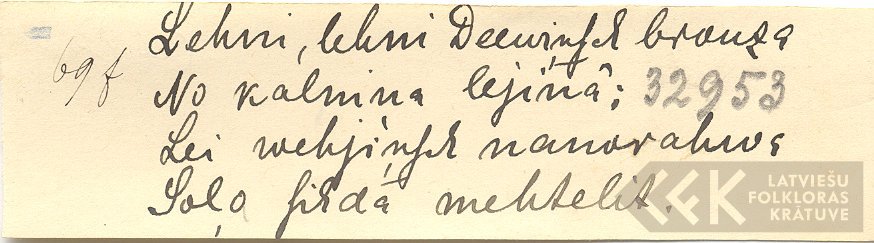 Lehni, lehni Deewiņſch brouza
69f No kalnina lejiņâ; 32953
Lei wehjiņſch nanorahwe
Soļo ſirdā mehtelit.
LATVIEŠU
FOLKLORAS
KRĀTUVE